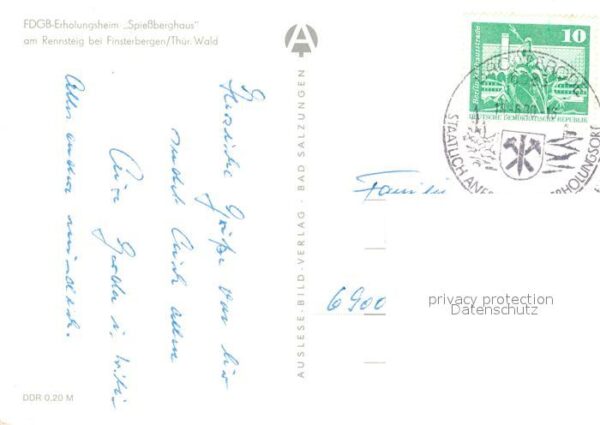 FDGB-Erholungsheim „Spießberghaus"
am Rennsteig bei Finsterbergen/Thür. Wald
Herzliche Grüße von hier
sendet Euch allen
Alles andere mündlich.
DDR 0,20 M
AUSLESE-BILD-VERLAG · BAD SALZUNGEN
10
DEUTSCHE DEMOKRATISCHE REPUBLIK
STAATLICH ANE
ERHOLUNGSORT
Familie
6900
privacy protection
Datenschutz